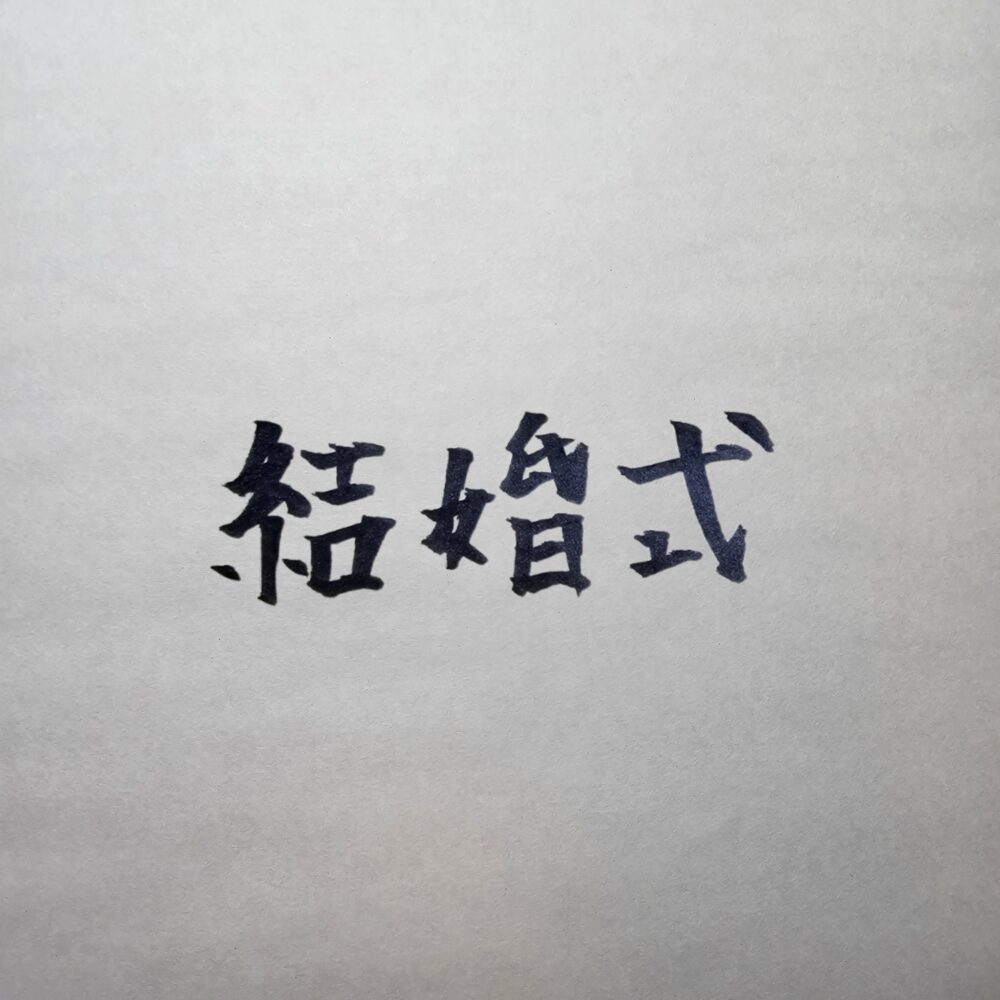 結婚式